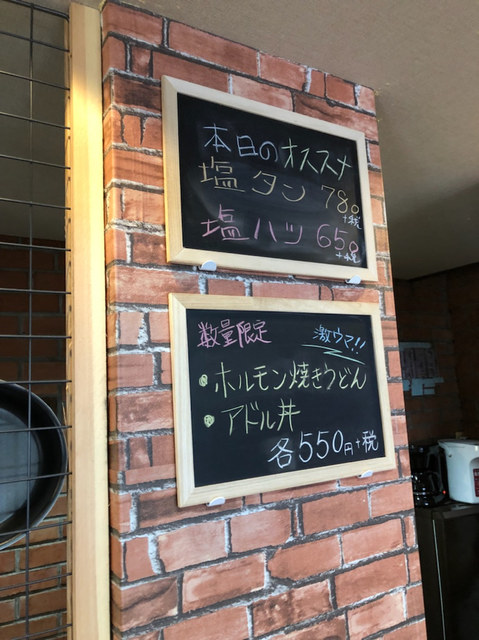 本日のオススメ
塩タン 780
+税
塩ハツ 650
+税
数量限定 激ウマ!!
・ホルモン焼きうどん
・アドル丼
各550円+税